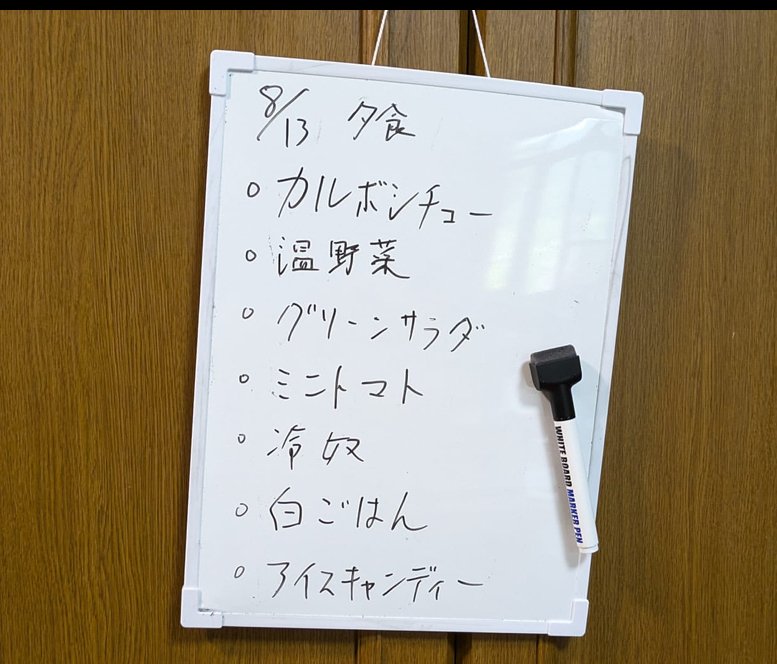 8/13 夕食
○ カルボシチュー
○ 温野菜
○ グリーンサラダ
○ ミニトマト
○ 冷奴
○ 白ごはん
○ アイスキャンディー
WHITE BOARD MARKER PEN